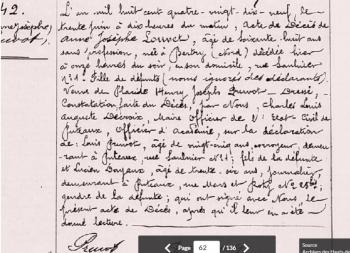 42.
L'an mil huit cent quatre-vingt-dix-neuf, le
trente juin à dix heures du matin, Acte de Décès de
Anne Josèphe Louvet, âgée de soixante huit ans
sans profession, née à Bertry (Nord) décédée hier
à onze heures du soir, en son domicile, rue Saulnier
n° 31. Fille de défunts (nous ignorés des déclarants).
Veuve de Placide Henry Joseph Pruvot - Dressé,
Constatation faite du Décès, par Nous, Charles Louis
Auguste Maire Officier de l'État Civil de
Puteaux, Officier d'Académie, sur la déclaration
de: Louis Pruvot, âgé de vingt-cinq ans,
demeurant à Puteaux, rue Saulnier n° 31; fils de la défunte
et Lucien âgé de trente-six ans, journalier,
demeurant à Puteaux, rue
gendre de la défunte; qui ont signé avec Nous, le
présent acte de Décès, après qu'il leur en a été
donné lecture.
Pruvot
Page 62 / 136
Source